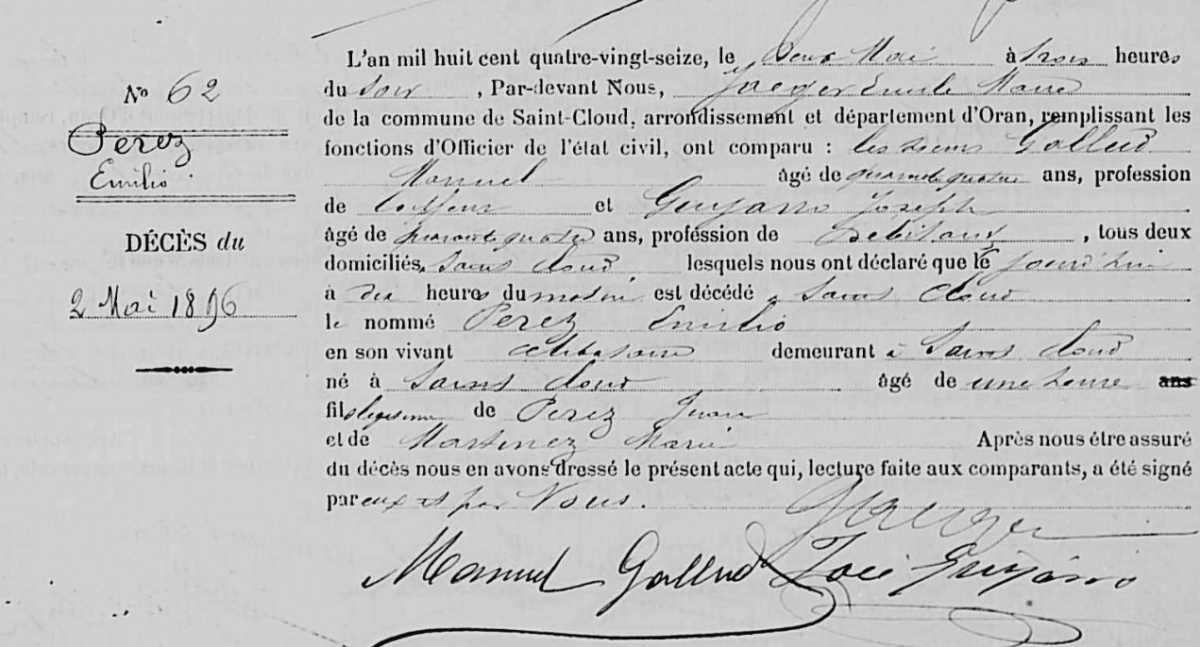 Nº 62
Perez
Emilio
DÉCÈS du
2 Mai 1896
L'an mil huit cent quatre-vingt-seize, le deux Mai à trois heures
du soir , Par-devant Nous, Jaeger Emile Maire
de la commune de Saint-Cloud, arrondissement et département d'Oran, remplissant les
fonctions d'Officier de l'état civil, ont comparu : les sieurs Gallud
Manuel âgé de quarante quatre ans, profession
de Coiffeur et Guijarro Joseph
âgé de quarante quatre ans, profession de Debitant , tous deux
domiciliés, Saint Cloud lesquels nous ont déclaré que le jourd'hui
à dix heures du matin est décédé à Saint Cloud
le nommé Perez Emilio
en son vivant célibataire demeurant à Saint Cloud
né à Saint Cloud âgé de une heure ans
fils légitime de Perez Juan
et de Martinez Marie Après nous être assuré
du décès nous en avons dressé le présent acte qui, lecture faite aux comparants, a été signé
par eux et par Nous.
Jaeger
Manuel Gallud José Guijarro